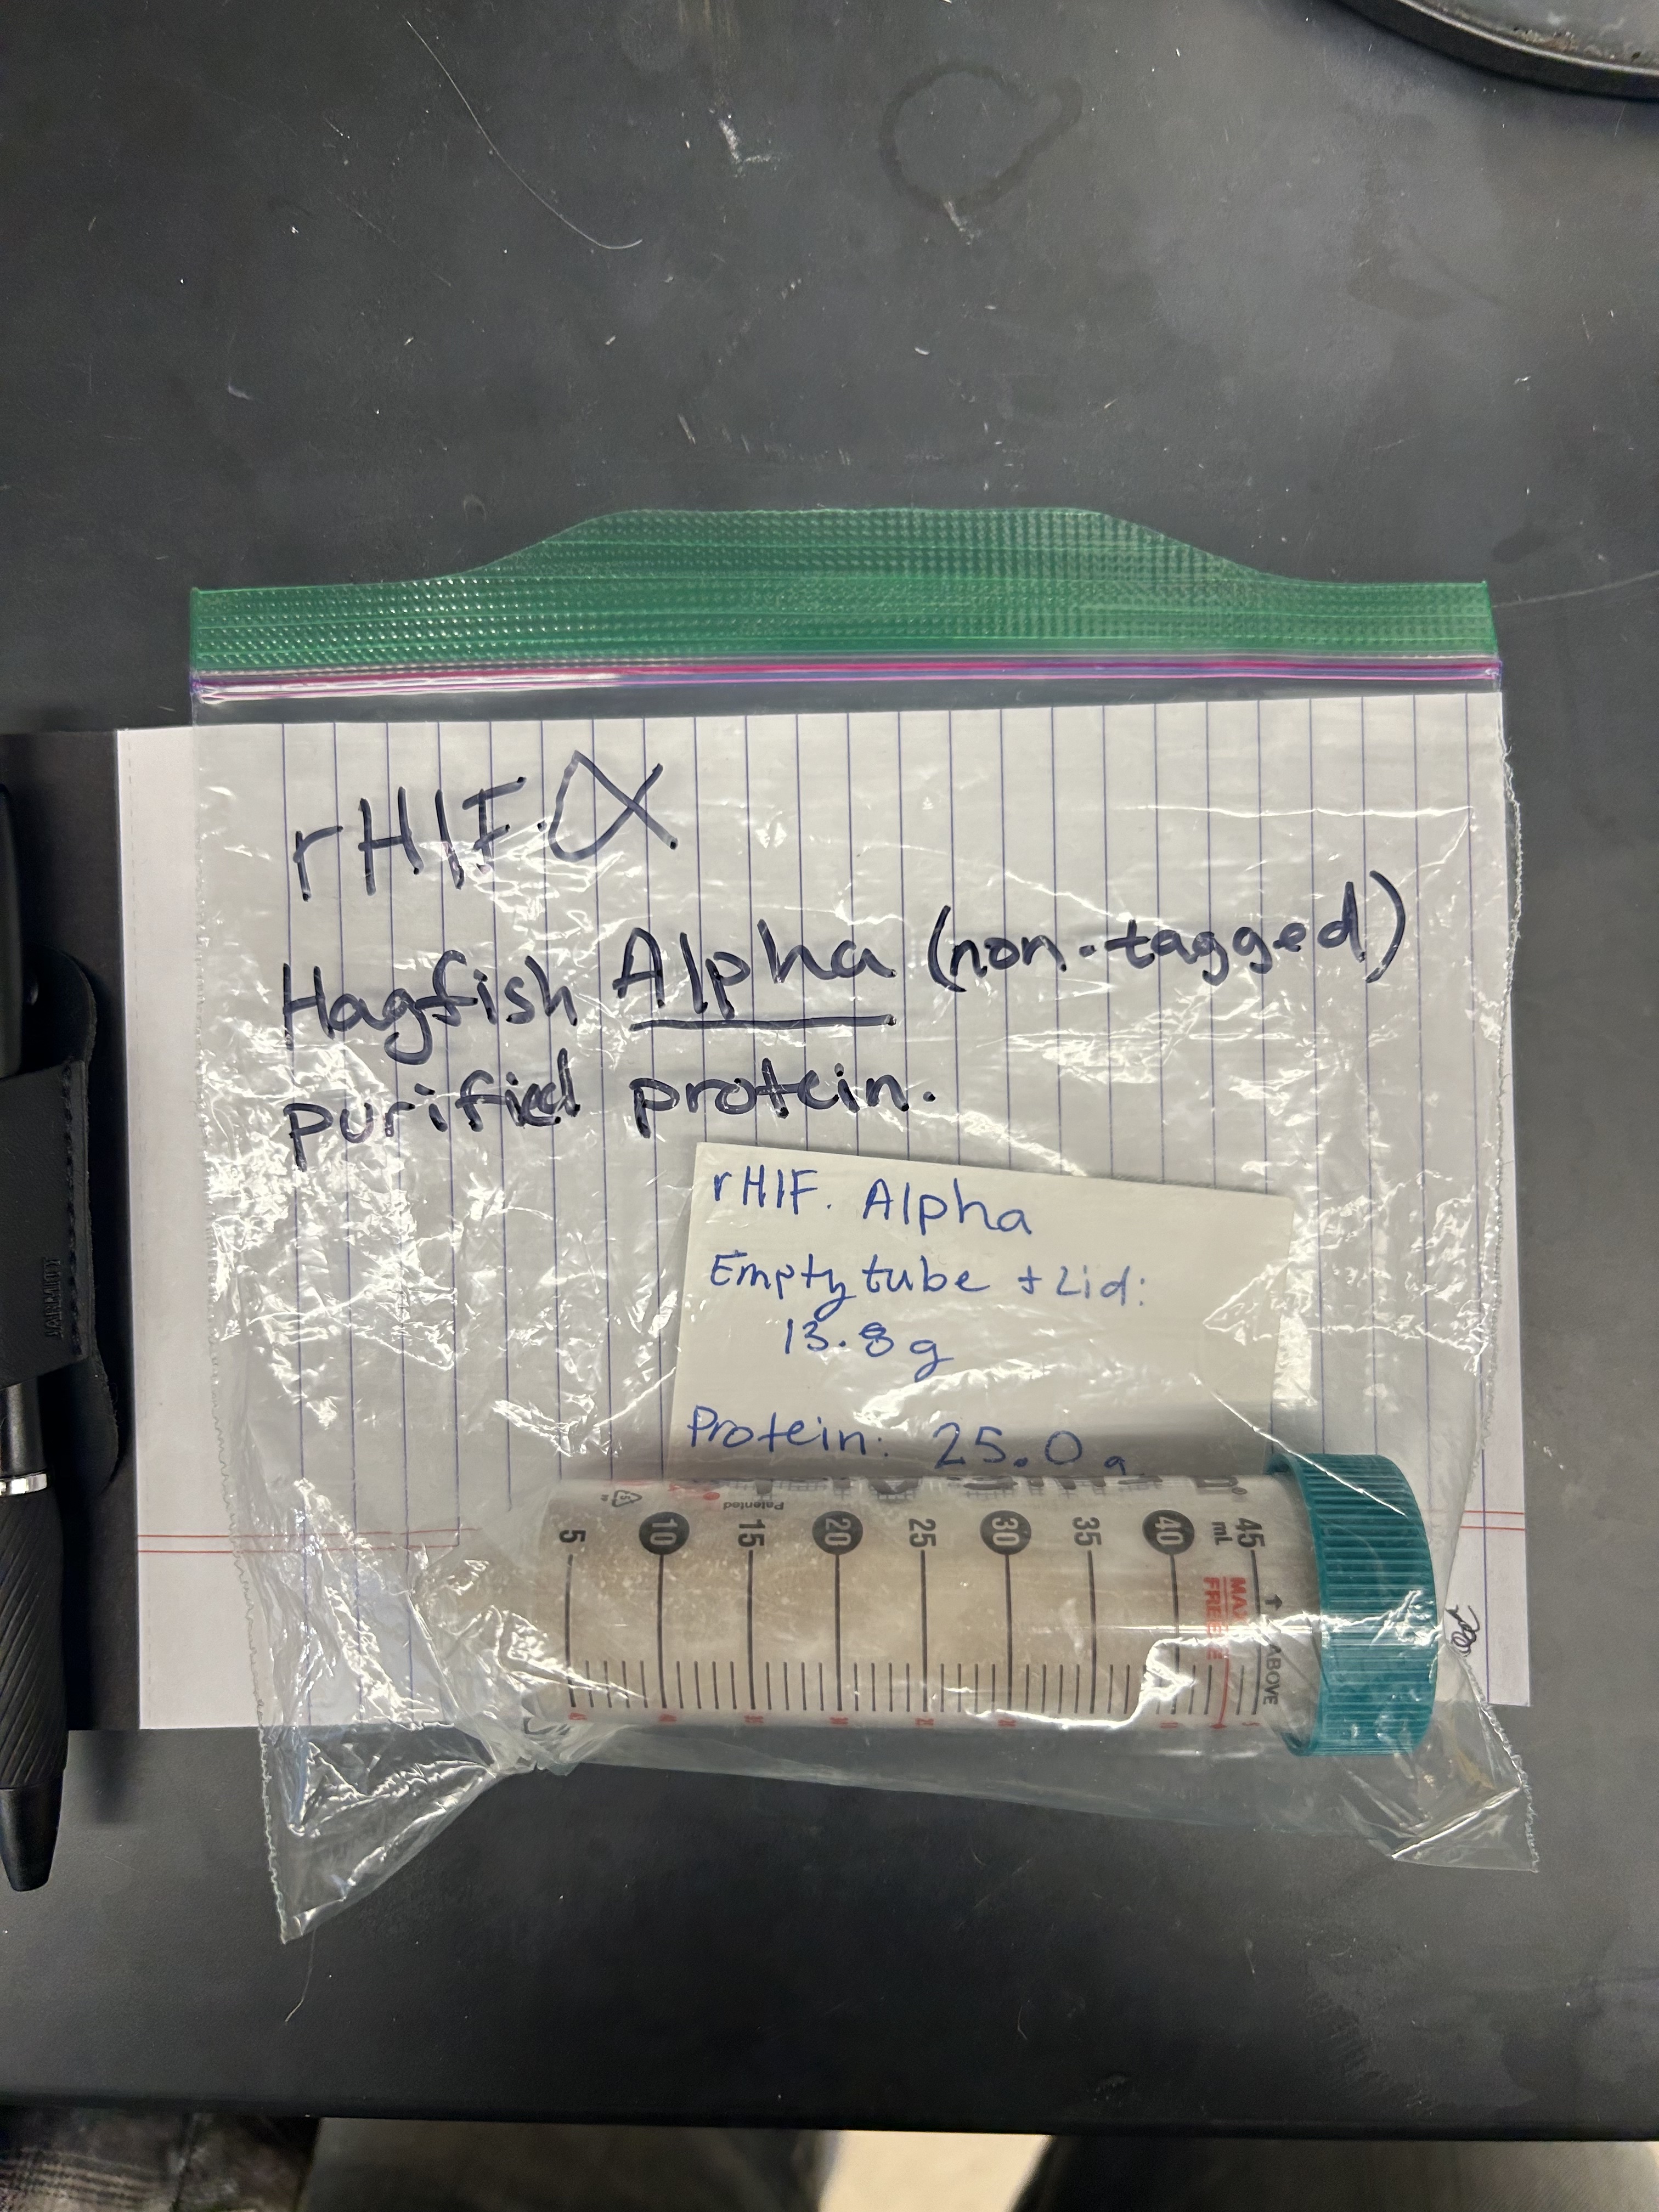 rHIF.α
Hagfish Alpha (non-tagged)
purified protein.
rHIF. Alpha
Empty tube + Lid:
13.8 g
Protein: 25.0 g
Patented
5 10 15 20 25 30 35 40 45
mL
ABOVE